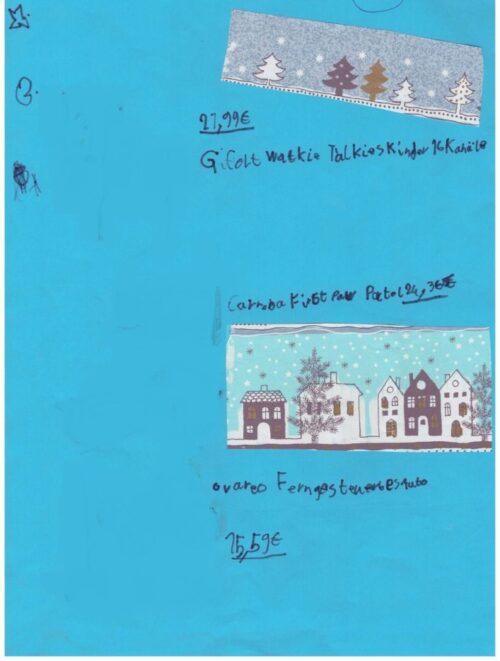 27,99€
Gifort Watkie Talkies Kinder 16 Kanäle
Carrera First Paw Patol 24,36€
ovareo Ferngesteuertes Auto
15,59€